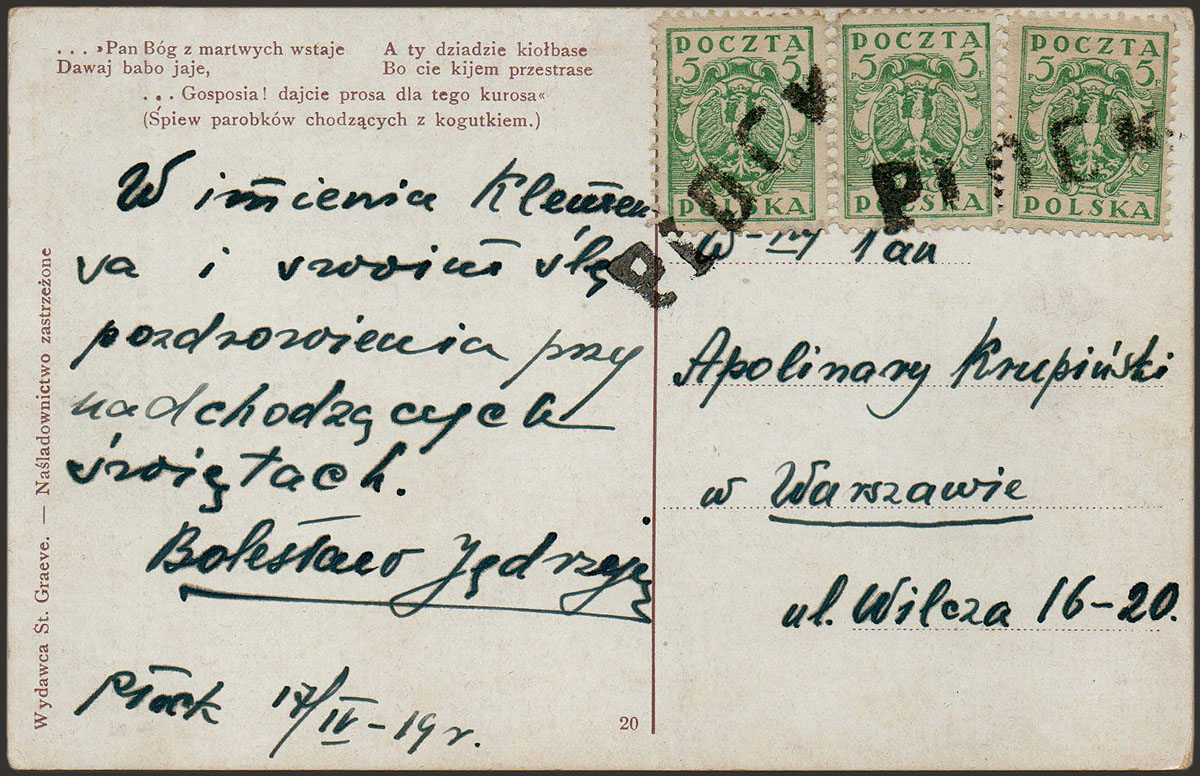 . . . »Pan Bóg z martwych wstaje
Dawaj babo jaje,
A ty dziadzie kiołbase
Bo cie kijem przestrase
. . . Gosposia! dajcie prosa dla tego kurosa«
(Śpiew parobków chodzących z kogutkiem.)
W imienia Klemen
sa i swoim ślę
pozdrowienia przy
nadchodzących
świętach.
Bolesław
Płock 17/IV-19 r.
Wydawca St. Graeve. — Naśladownictwo zastrzeżone
20
POCZTA
5 5
POLSKA
POCZTA
5 5
POLSKA
POCZTA
5 5
POLSKA
PŁOCK
PŁOCK
W-ny Pan
Apolinary Krupiński
w Warszawie
ul. Wilcza 16-20.